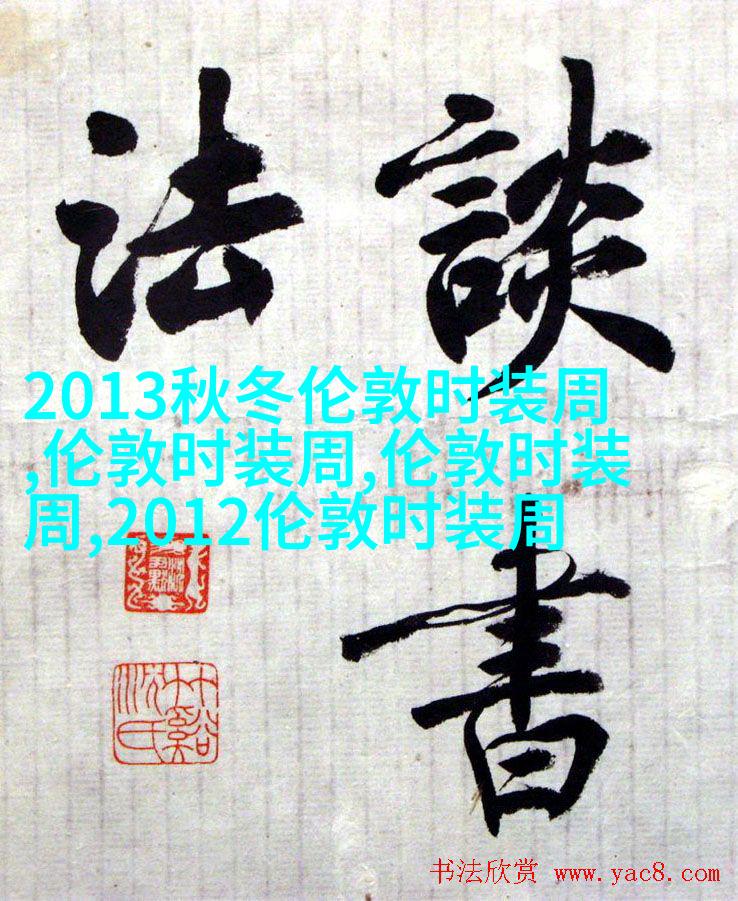 談書
法
2013秋冬伦敦时装周
,伦敦时装周,伦敦时装
周,2012伦敦时装周
书法欣赏 www.yac8.com